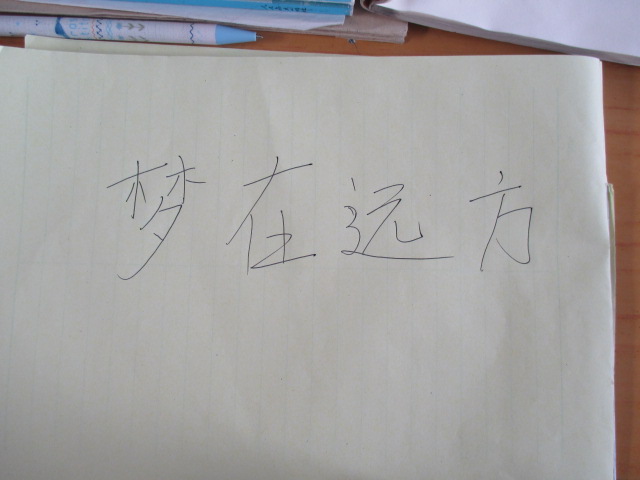 梦在远方